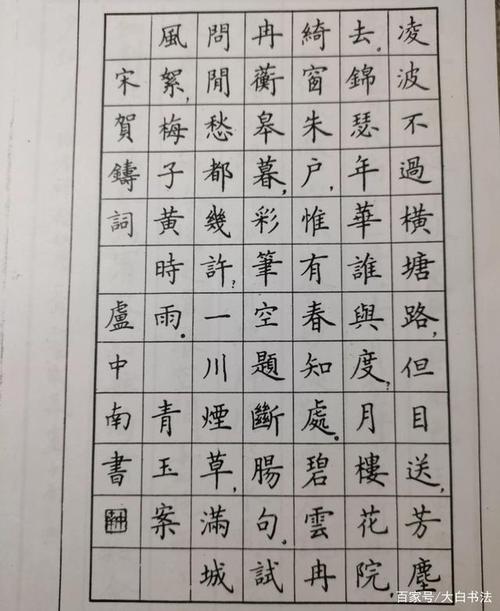 凌波不過橫塘路,但目送,芳塵
去。錦瑟年華誰與度?月樓花院,
綺窗朱户,惟有春知處。碧雲冉
冉蘅皋暮,彩筆空題斷腸句。試
問閒愁都幾許?一川煙草,滿城
風絮,梅子黃時雨。 青玉案
宋賀鑄詞 盧中南書
百家号/大白书法